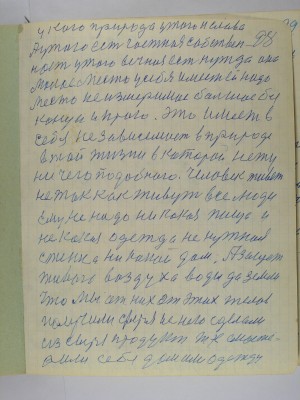 у кого природа у того и слава
А у того ест частная собствен-
ност у того вечная ест нужда она
место у себя имеет ей надо
место не измеримое балшое без
конца и краю. Это имеет в
себя независемаст в природе
в такой жизни в которой нету
ни чего подобного. Человек живет
не так как живут все люди
ему не надо ни какая пища и
не какая одежда не нужная
стенка ни какой дом, А заслуга
живого воздуха воды да земли
что мы от них от этих
получили сырья из него сделали
из сырья продукт
себя домом одежду